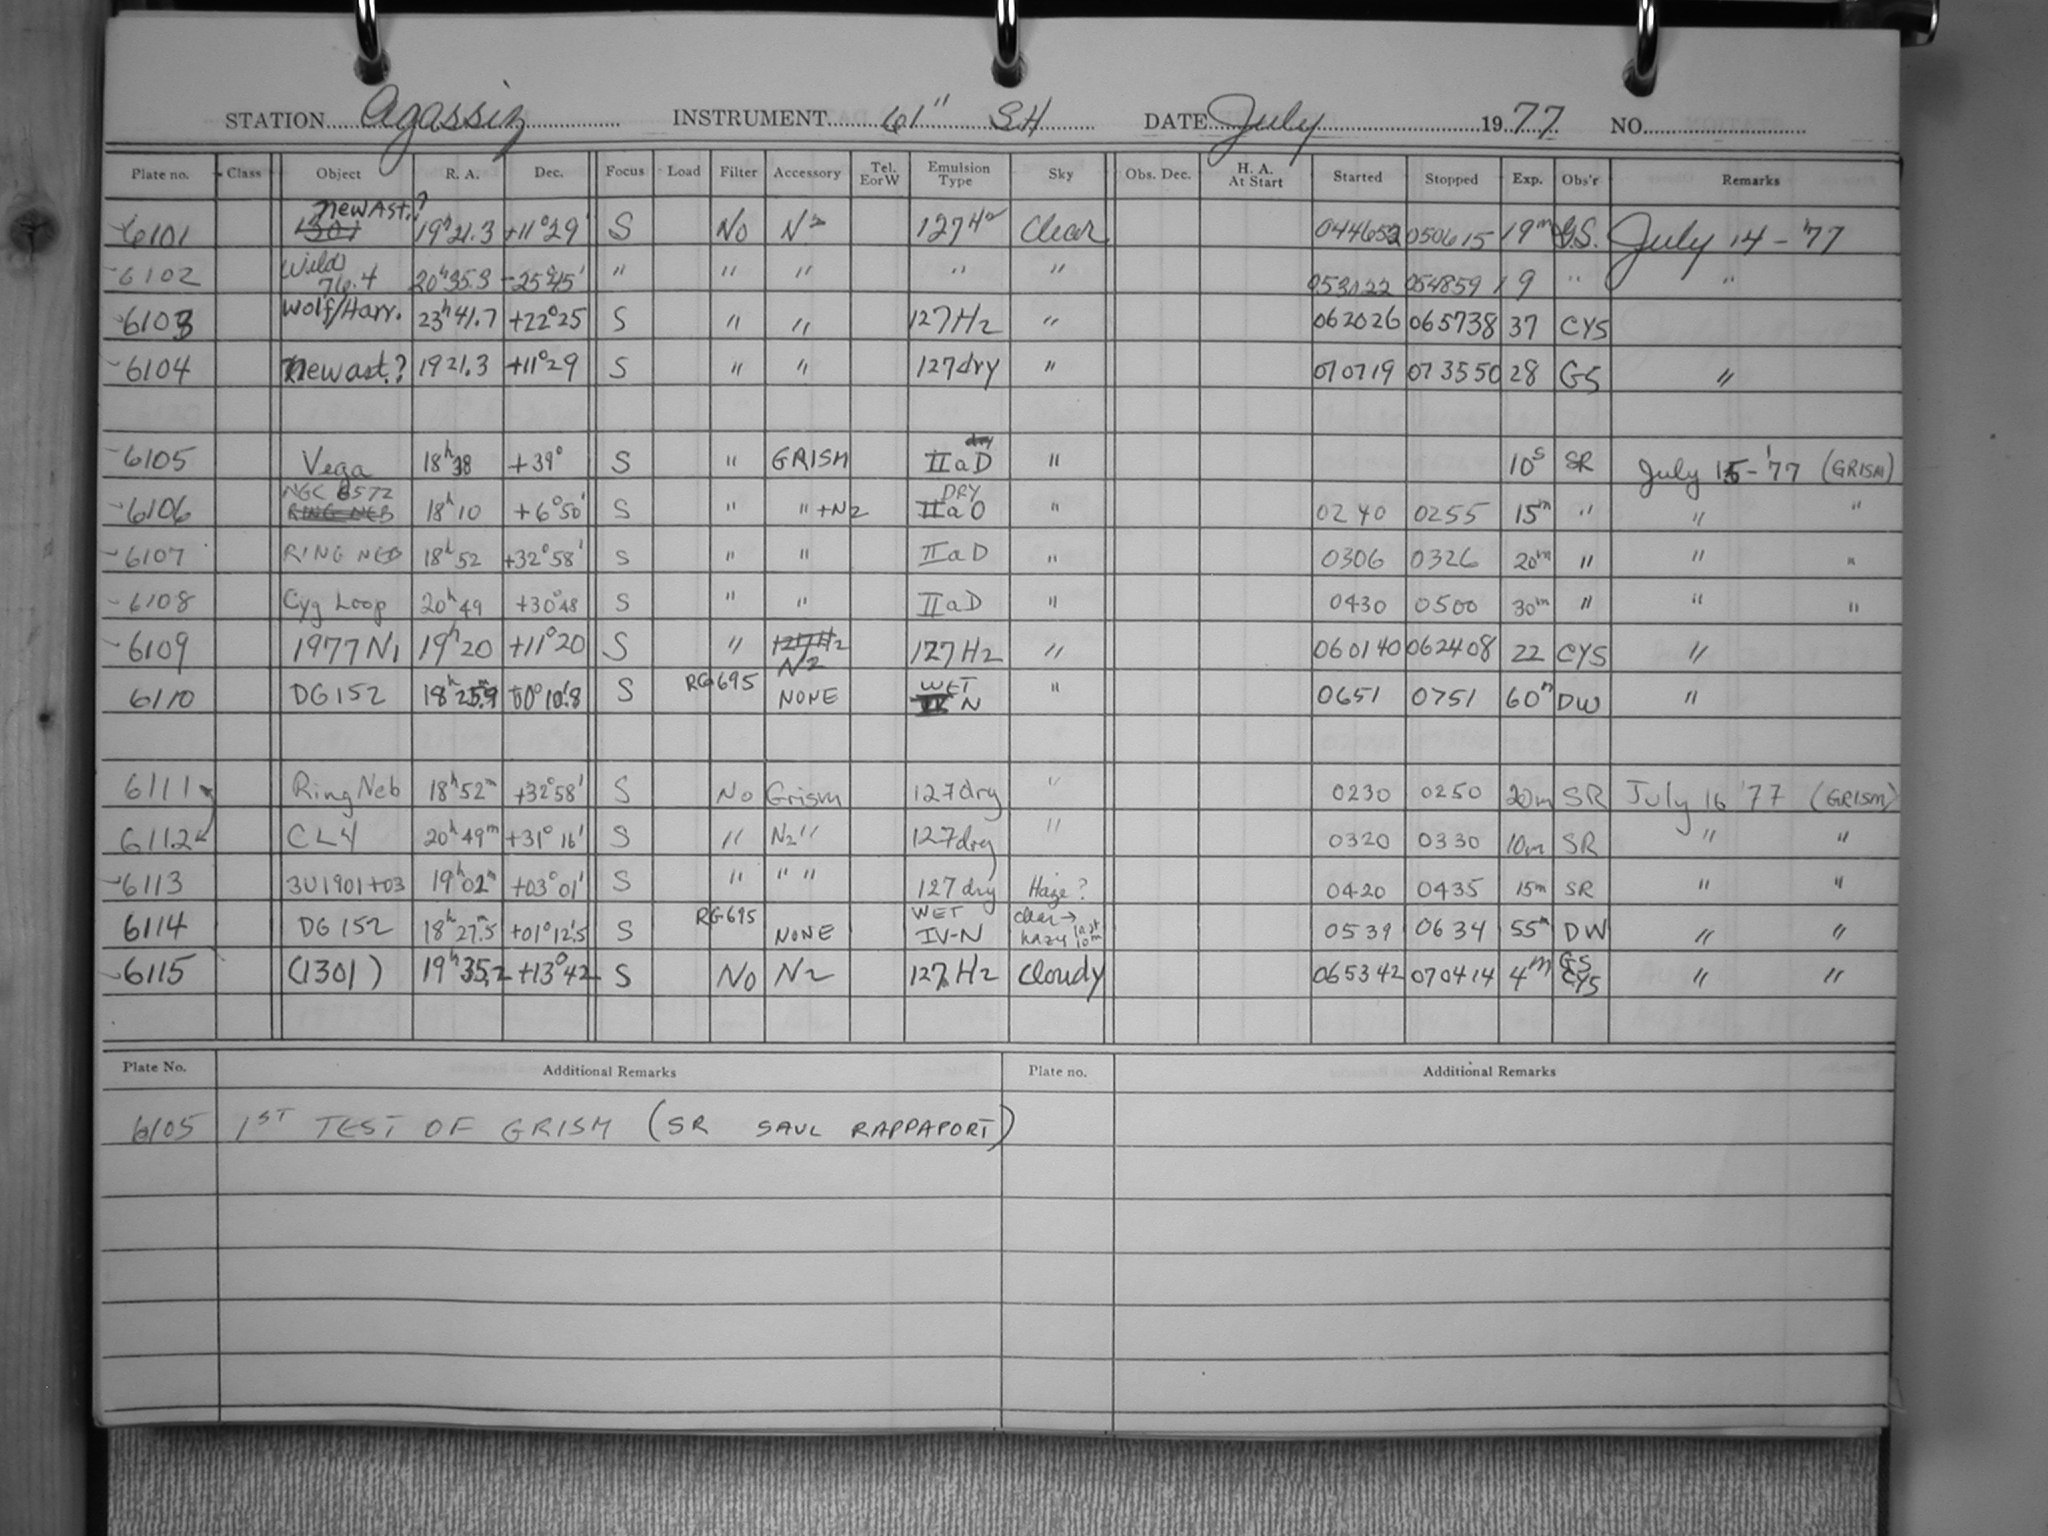 STATION Agassiz INSTRUMENT 61" SH DATE July 1977 NO.
Plate no. Class Object R. A. Dec. Focus Load Filter Accessory Tel. E or W Emulsion Type Sky Obs. Dec. H. A. At Start Started Stopped Exp. Obs'r Remarks
6101 1301 new Ast.? 19h21.3 +11°29' S No N2 127H2 Clear 044652 050615 19m G.S. July 14-'77
6102 Wild 76.4 20h35.3 -25°45' " " " " " 053022 054859 19 " "
6103 Wolf/Harr. 23h41.7 +22°25 S " " 127H2 " 062026 065738 37 CYS
6104 new ast.? 19 21.3 +11°29 S " " 127dry " 070719 073550 28 GS "
6105 Vega 18h38 +39° S " GRISM IIaD dry " 10s SR July 15-'77 (GRISM)
6106 NGC 6572 RING NEB 18h10 +6°50' S " " +N2 IIaO DRY " 0240 0255 15m " " "
6107 RING NEB 18h52 +32°58' S " " IIaD " 0306 0326 20m " " "
6108 Cyg Loop 20h49 +30°48 S " " IIaD " 0430 0500 30m " " "
6109 1977 N1 19h20 +11°20 S " 127H2 N2 127H2 " 060140 062408 22 CYS "
6110 DG152 18h25m.9 +00°10'.8 S RG695 NONE WET N " 0651 0751 60m DW "
6111 Ring Neb 18h52m +32°58' S No Grism 127dry " 0230 0250 20m SR July 16 '77 (GRISM)
6112 CL4 20h49m +31°16' S " N2 " 127dry " 0320 0330 10m SR " "
6113 3U1901+03 19h02m +03°01' S " " " 127dry Haze? 0420 0435 15m SR " "
6114 DG152 18h27m.5 +01°12'.5 S RG695 NONE WET IV-N clear→ hazy last 10m 0539 0634 55m DW " "
6115 (1301) 19h35.2 +13°42 S No N2 127H2 Cloudy 065342 070414 4m GS CYS " "
Plate No. Additional Remarks Plate no. Additional Remarks
6105 1ST TEST OF GRISM (SR SAUL RAPPAPORT)